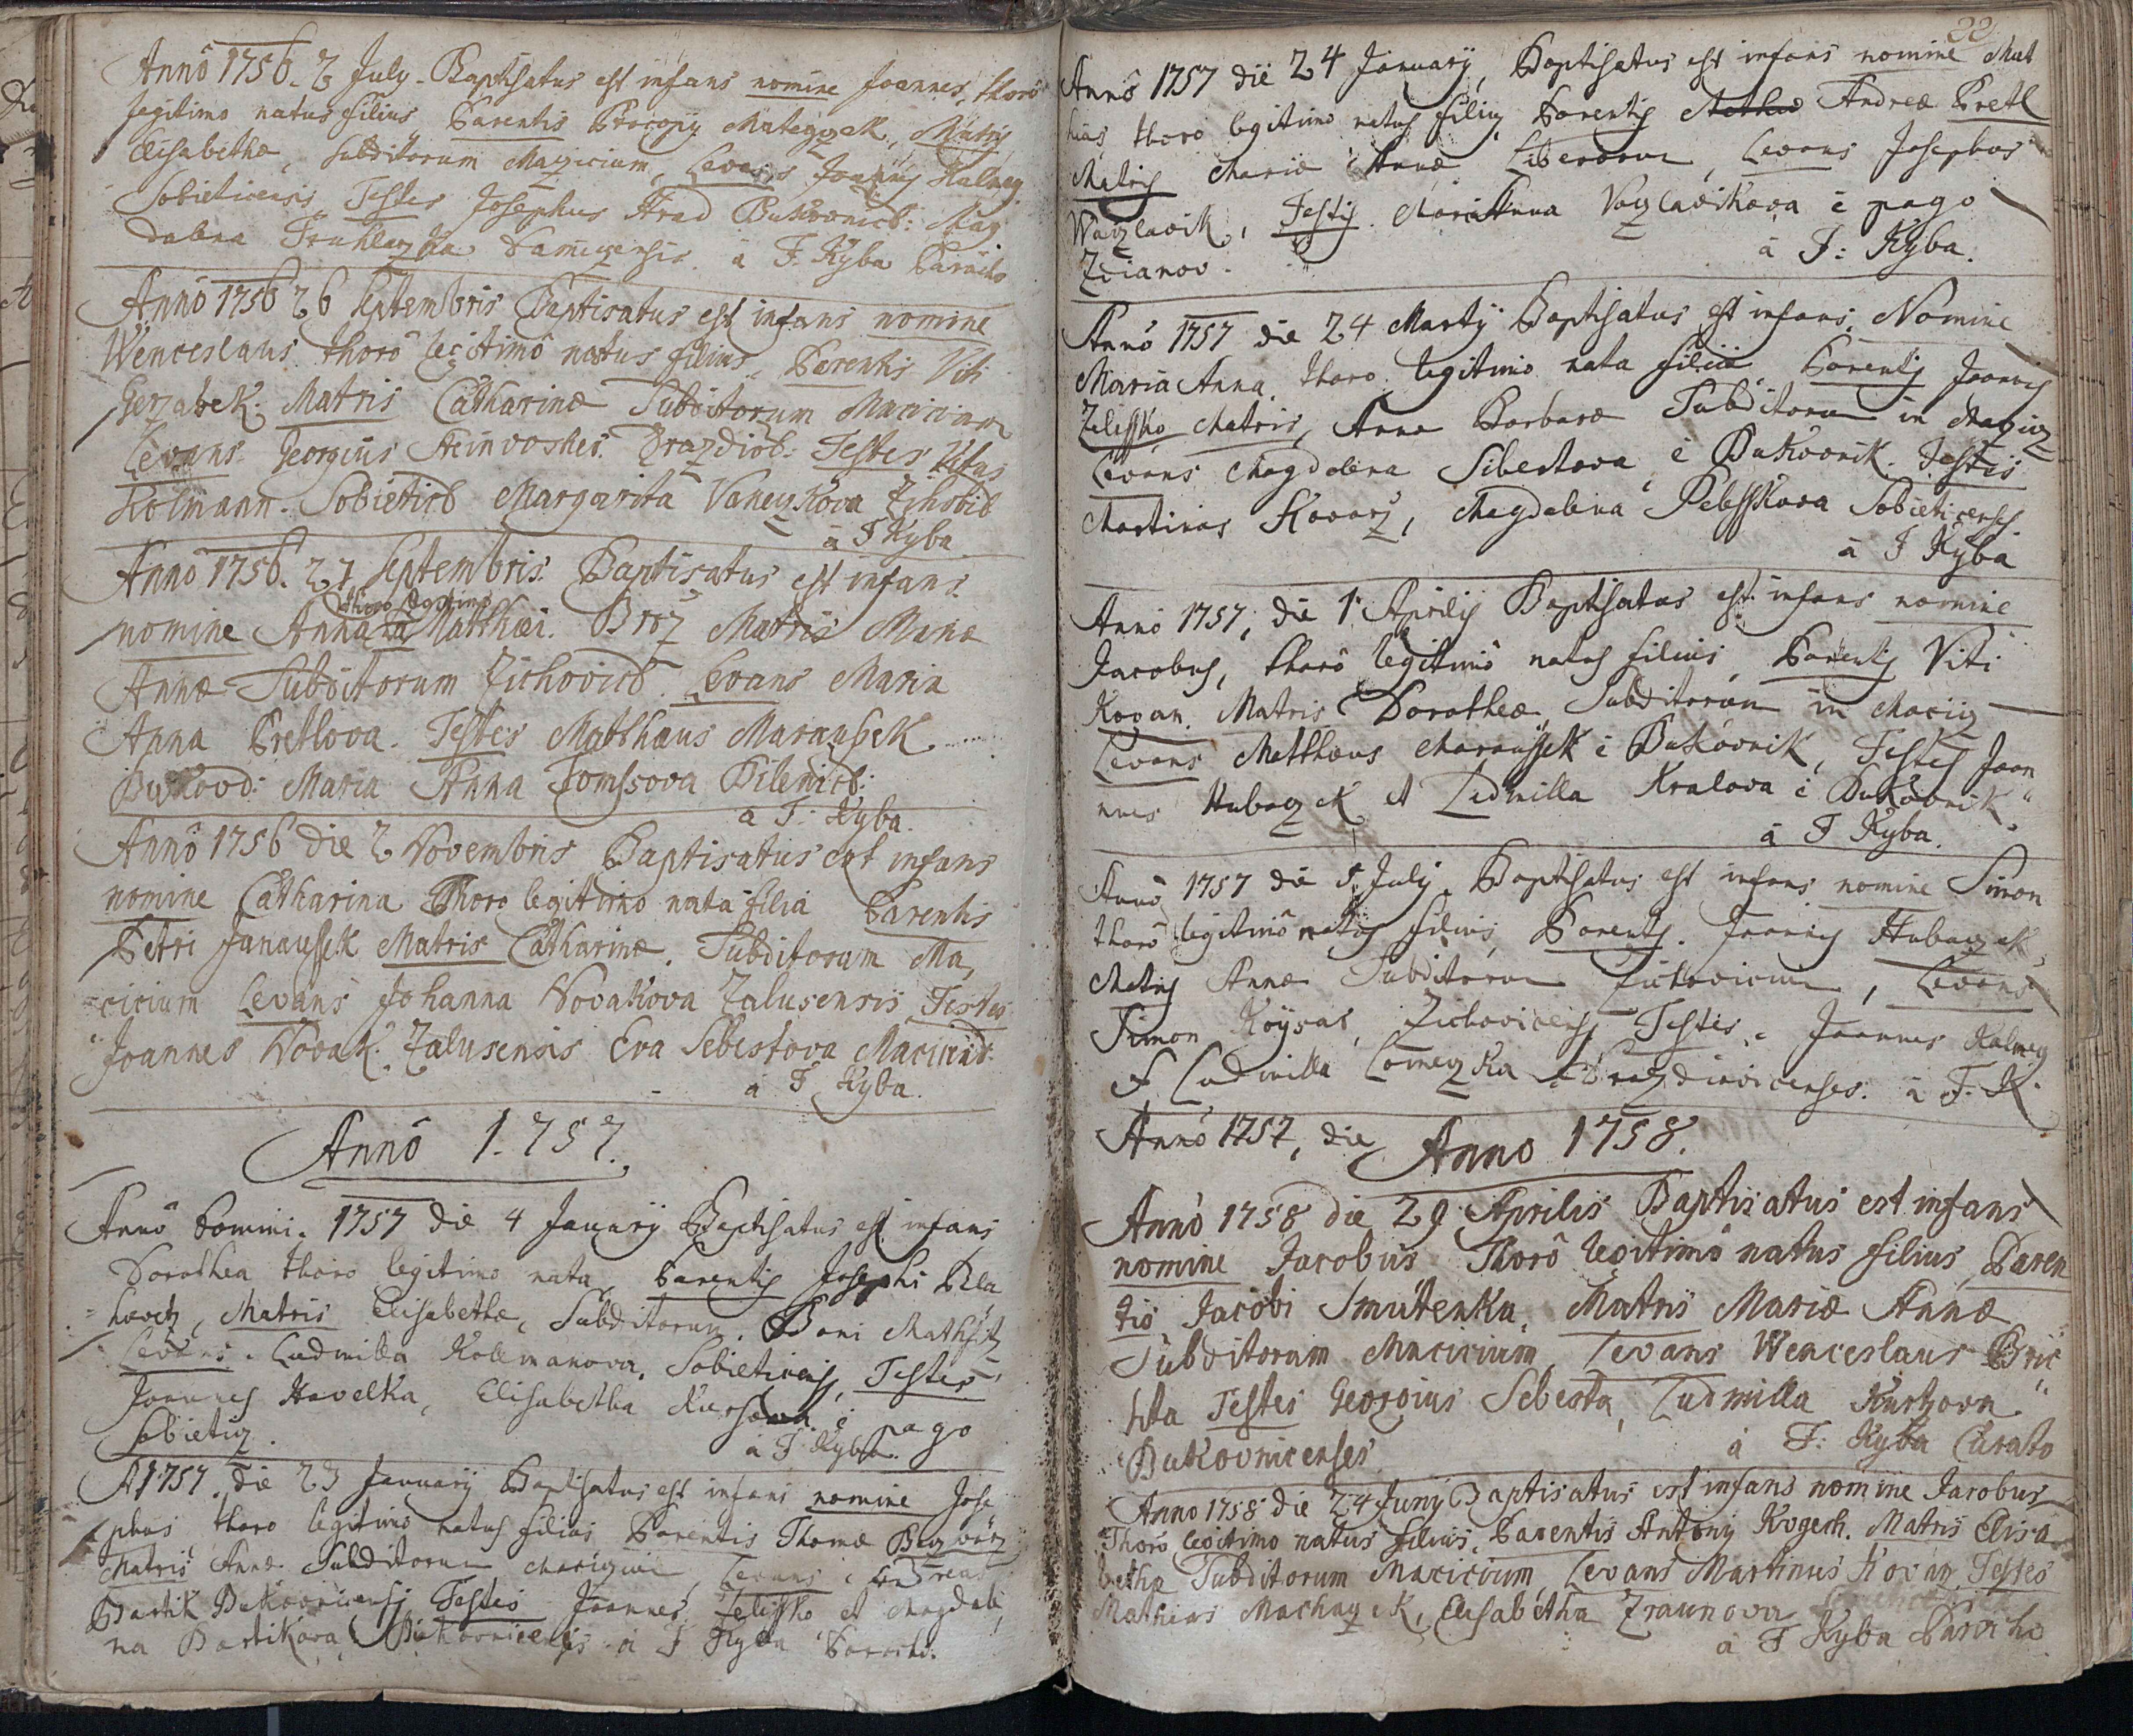 Annô 1756. 2 July. Baptisatus est infans nomine Joannes, thorô
legitimo natus filius Parentis Procopy Mategzek, Matris
Elisabethæ, subditorum Maczicium, Levans Joannes Kalney
Sobieticensis Testes Josephus Hrad Bukovnicb: Mag
dalena Truhlarzka Damiczensis. â F. Kyba Parocho
Annô 1756 26 Septembris Baptisatus est infans nomine
Wenceslaus thorô legitimô natus filius, Parentis Viti
Gerzabek. Matris Catharinæ Subditorum Macicium
Levans Georgius Drazdiob. Testes Vitus
Kolmann. Sobieticb Margarita Vaneczkova Zihobib
â F Kyba
Annô 1756. 27 Septembris. Baptisatus est infans.
thoro legitimo
nomine Anna Matthæi. Broz Matris Mariæ
Annæ Subditorum Zichovicb. Levans Maria
Anna Pretlova. Testes Matthæus Maraussek
Bukovd: Maria Anna Tomssova Bilenicb:
a F: Kyba.
Annô 1756 die 2 Novembris Baptisatus est infans
nomine Catharina Thoro legitimo nata filia Parentis
Petri Janaussek Matris Catharinæ. Subditorum Ma,
cicium Levans Johanna Novakova Zalusensis, Testes
Joannes Novak. Zalusensis Eva Sebestova Macicens.
â F Kyba.
Annô 1.757.
Annô Domini. 1757 die 4 January Baptisatus est infans
Dorothea thoro legitimo nata, Parentis Josephi Bla
=havetz, Matris Elisabethæ, Subditorum. Boni
Levans. Ludmilla Kolemanova, Sobieticens, Testes
Joannes Havelka, Elisabetha è pago
Sobieticz. a F Kyba.
A 1757. die 23 January Baptisatus est infans nomine Jose
phus thoro legitimo natus filius Parentis Thomæ
Matris Annæ Subditorum Levans Andreas
Bartik Bukovnicensis Testes Joannes Zelissko et Magdale
na Bartikova, Bukovnicensis â F Kyba Parocho.
22
Annô 1757 die 24 January, Baptisatus est infans nomine Mat
hias, thoro legitimo natus filius Parentis Andreæ Pretl
Matris Mariæ Annæ Liberorum, Levans Josephus
Waczlavik, Testis. MariAnna Vaczlavikova è pago
Zdianov. â F: Kyba.
Annô 1757 die 24 Marty Baptisatus est infans Nomine
Maria Anna, thoro legitimo nata filia Parentis Joannis
Zelissko Matris, Anna Barbaræ Subditorum in Maczicz
Levans Magdalena Sibestova è Bukovnik. Testes
Martinus Kovarz, Magdalena Pelesskova Sobieticenses
â F Kyba
Annô 1757, die 1 Aprilis Baptisatus est infans nomine
Jacobus, thorô legitimô natus filius, Parentis Viti
Kovan. Matris Dorotheæ Subditorum in Maciiz
Levans Matthæus Maraussek è Bukovnik, Testes Joan
nnes Hubaczek et Ludmilla Kralova è Bukovnik.
â F Kyba.
Annô 1757 die 5 July. Baptisatus est infans nomine Simon
thorô legitimô natus filius, Parentis. Joannis Hubaczek
Matris Annæ Subditorum Zichovicium, Levans
Simon Zichovicensis Testes. Joannes Kalney
et Ludmilla Drazdiovicenses. â F. K
Annô 1757, die
Anno 1758.
Annô 1758 die 29 Aprilis Baptisatus est infans
nomine Jacobus Thorô legitimô natus filius, Paren
tis Jacobi Smutenka, Matris Mariæ Annæ
Subditorum Macicium, Levans Wenceslaus Bric
hta Testes Georgius Sebesta, Ludmilla
Bukovnicenses â F: Kyba Curato
Anno 1758 die 24 Juny Baptisatus est infans nomine Jacobus
Thorô legitimo natus filius, Parentis Antony Matris Elisa
bethæ Subditorum Macicium, Levans Martinus Kovarz Testes
Mathias Machaczek, Elisabetha Zraunova
â F Kyba Parocho